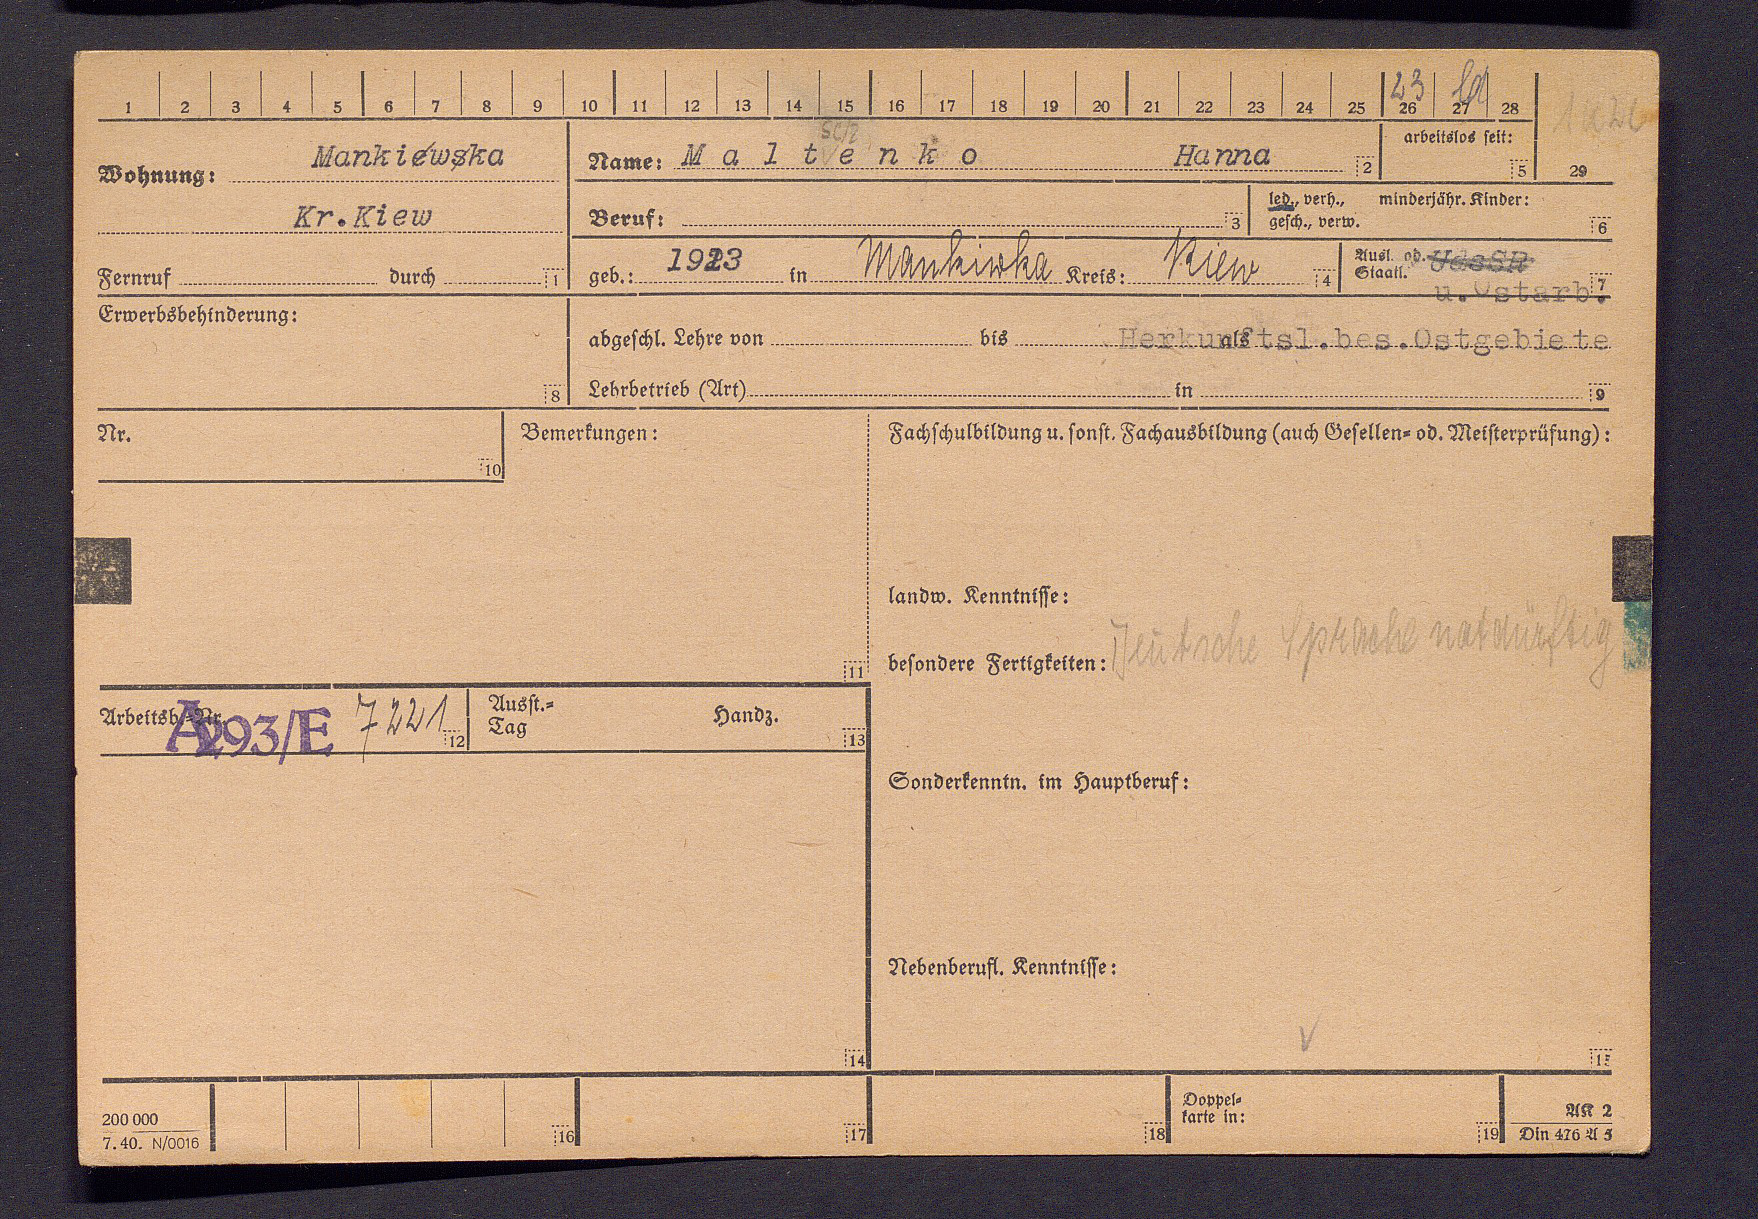 1 2 3 4 5 6 7 8 9 10 11 12 13 14 15 16 17 18 19 20 21 22 23 24 25 26 27 28 29
23
Wohnung: Mankiewska
Kr.Kiew
Fernruf durch 1
Name: Maltenko Hanna 2
arbeitslos seit: 5
Beruf: 3
led., verh., gesch., verw.
minderjähr. Kinder: 6
geb.: 1923 in Mankiwka Kreis: Kiew 4
Ausl. od. Staatl. UdSSR 7
u.Ostarb.
Erwerbsbehinderung: 8
abgeschl. Lehre von bis als
Herkunftsl.bes.Ostgebiete
Lehrbetrieb (Art) in 9
Nr. 10
Bemerkungen: 11
Fachschulbildung u. sonst. Fachausbildung (auch Gesellen= od. Meisterprüfung):
landw. Kenntnisse:
besondere Fertigkeiten: Deutsche Sprache notdürftig
Arbeitsb.=Nr. A293/E 7221 12
Ausst.=Tag Handz. 13
Sonderkenntn. im Hauptberuf:
Nebenberufl. Kenntnisse:
14 15
200 000
7. 40. N/0016
16 17 18
Doppel=
karte in: 19
AK 2
Din 476 A 5